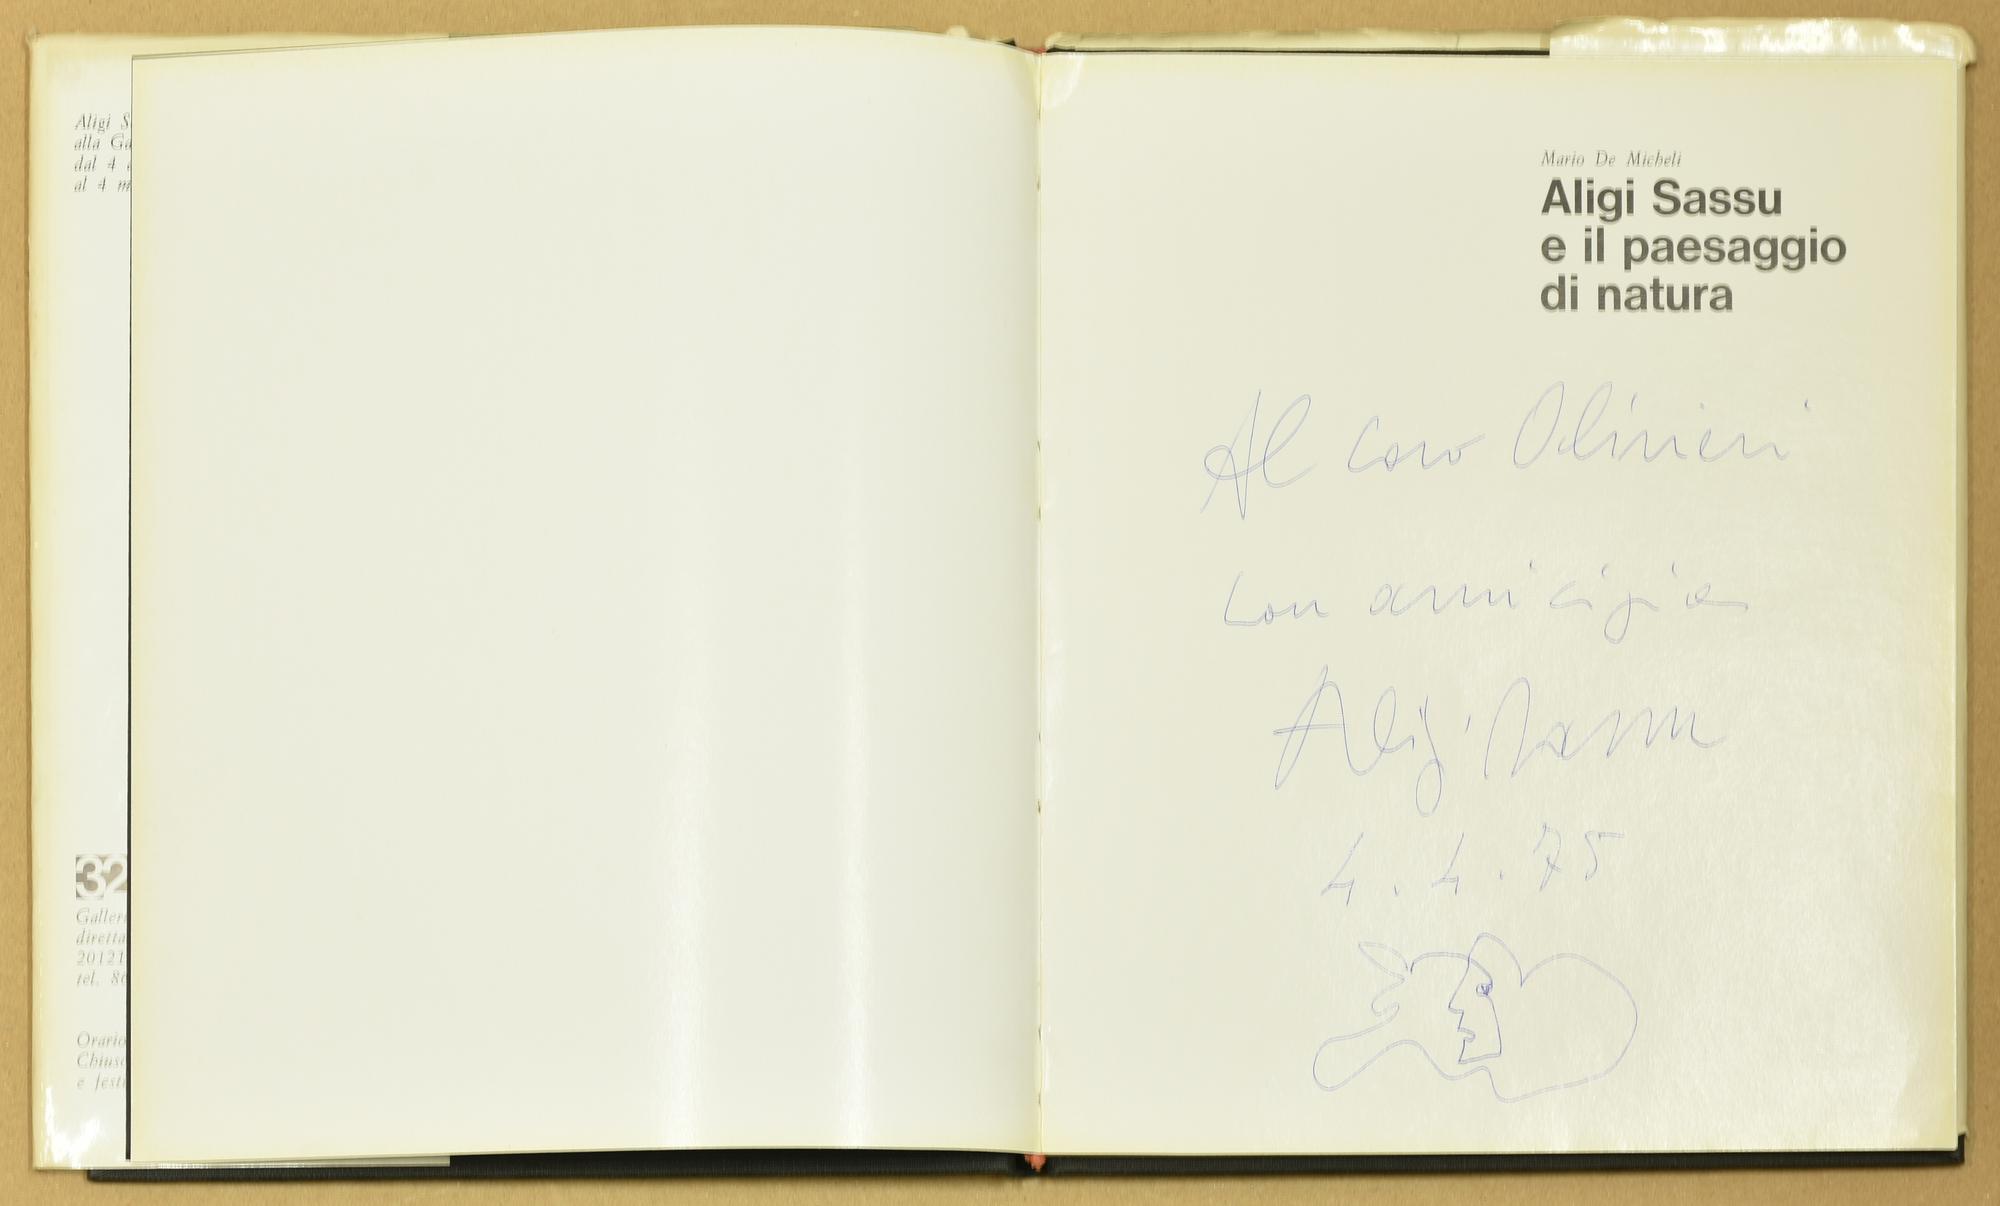 Aligi S
alla Ga
dal 4
al 4 m
32
Galler
diretta
20121
tel. 8
Orario
Chius
e festi
Mario De Micheli
Aligi Sassu
e il paesaggio
di natura
Al caro Olivieri
con amicizia
Aligi Sassu
4.4.75